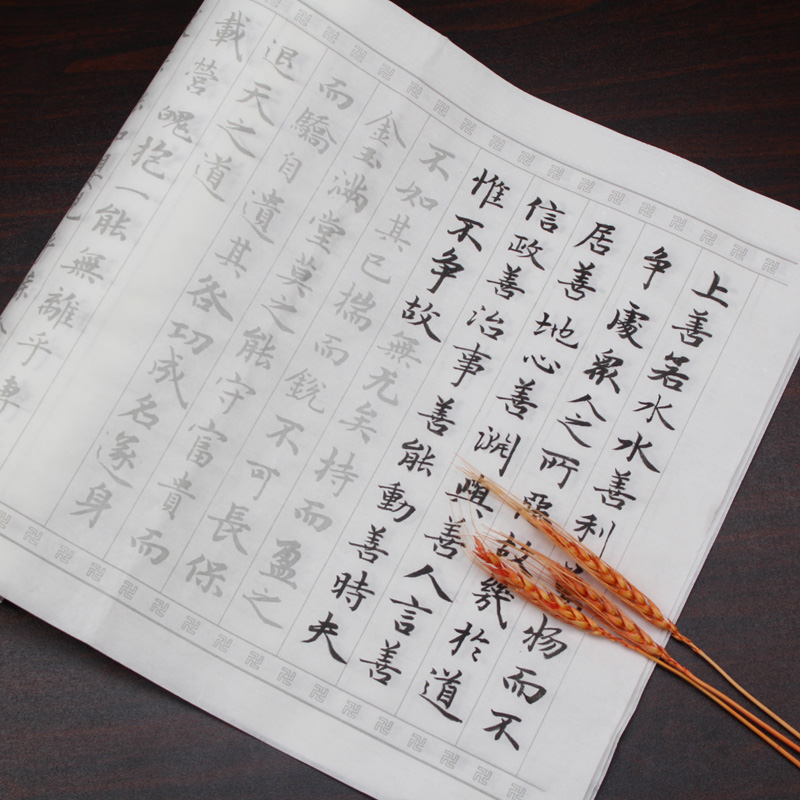 上善若水水善利萬物而不
争處衆人之所惡故幾於道
居善地心善淵與善人言善
信政善治事善能動善時夫
惟不争故無尤矣持而盈之
不如其已揣而銳不可長保
金玉滿堂莫之能守富貴而
而驕自遺其咎功成名遂身
退天之道
載營魄抱一能無離乎專